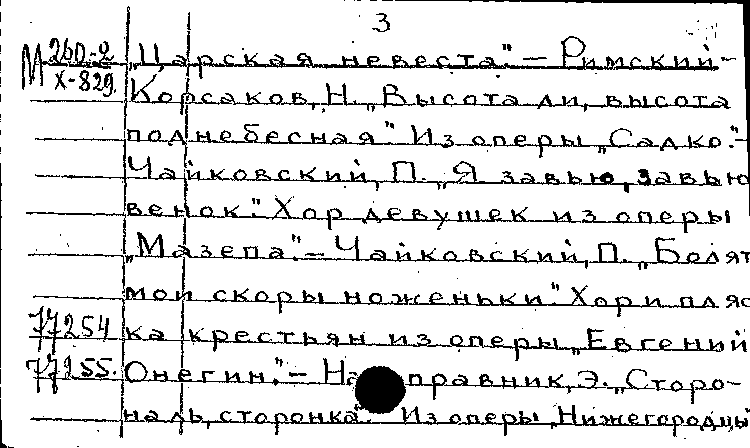 3
М 260-2 „Царская невеста". – Римский-
Х-829. Корсаков, Н. „Высота ли, высота
поднебесная". Из оперы „Садко". –
Чайковский, П. „Я завью, завью
венок". Хор девушек из оперы
„Мазепа". – Чайковский, П. „Болят
мои скоры ноженьки". Хор и пляс
77254 ка крестьян из оперы „Евгений
77255. Онегин". – Направник, Э. „Сторо-
на ль, сторонка". Из оперы „Нижегородцы